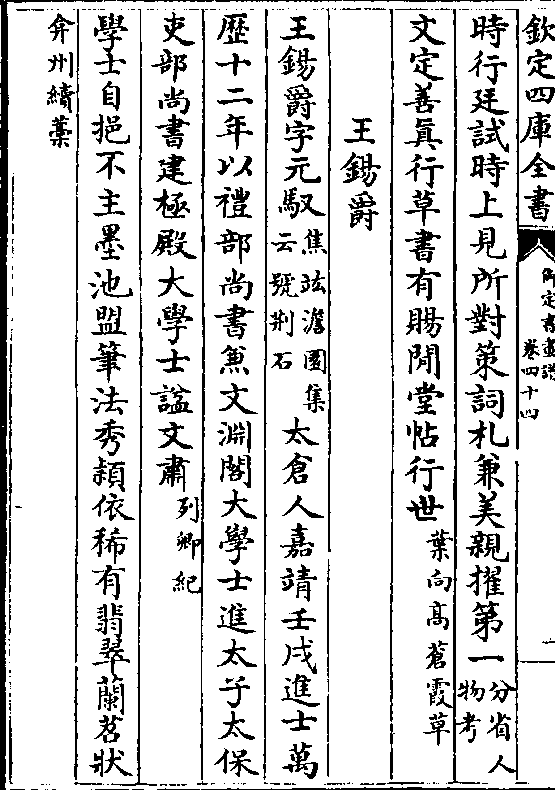 欽定四庫全書
御定書畫譜
卷四十四
時行廷試時上見所對策詞札兼美親擢第一分省人物考
文定善眞行草書有賜閒堂帖行世葉向髙蒼霞草
王錫爵
王錫爵字元馭焦竑澹園集云號荆石太倉人嘉靖壬戌進士萬
歴十二年以禮部尚書兼文淵閣大學士進太子太保
吏部尚書建極殿大學士諡文肅列卿紀
學士自挹不主墨池盟筆法秀頴依稀有翡翠蘭苕狀
弇州續藁